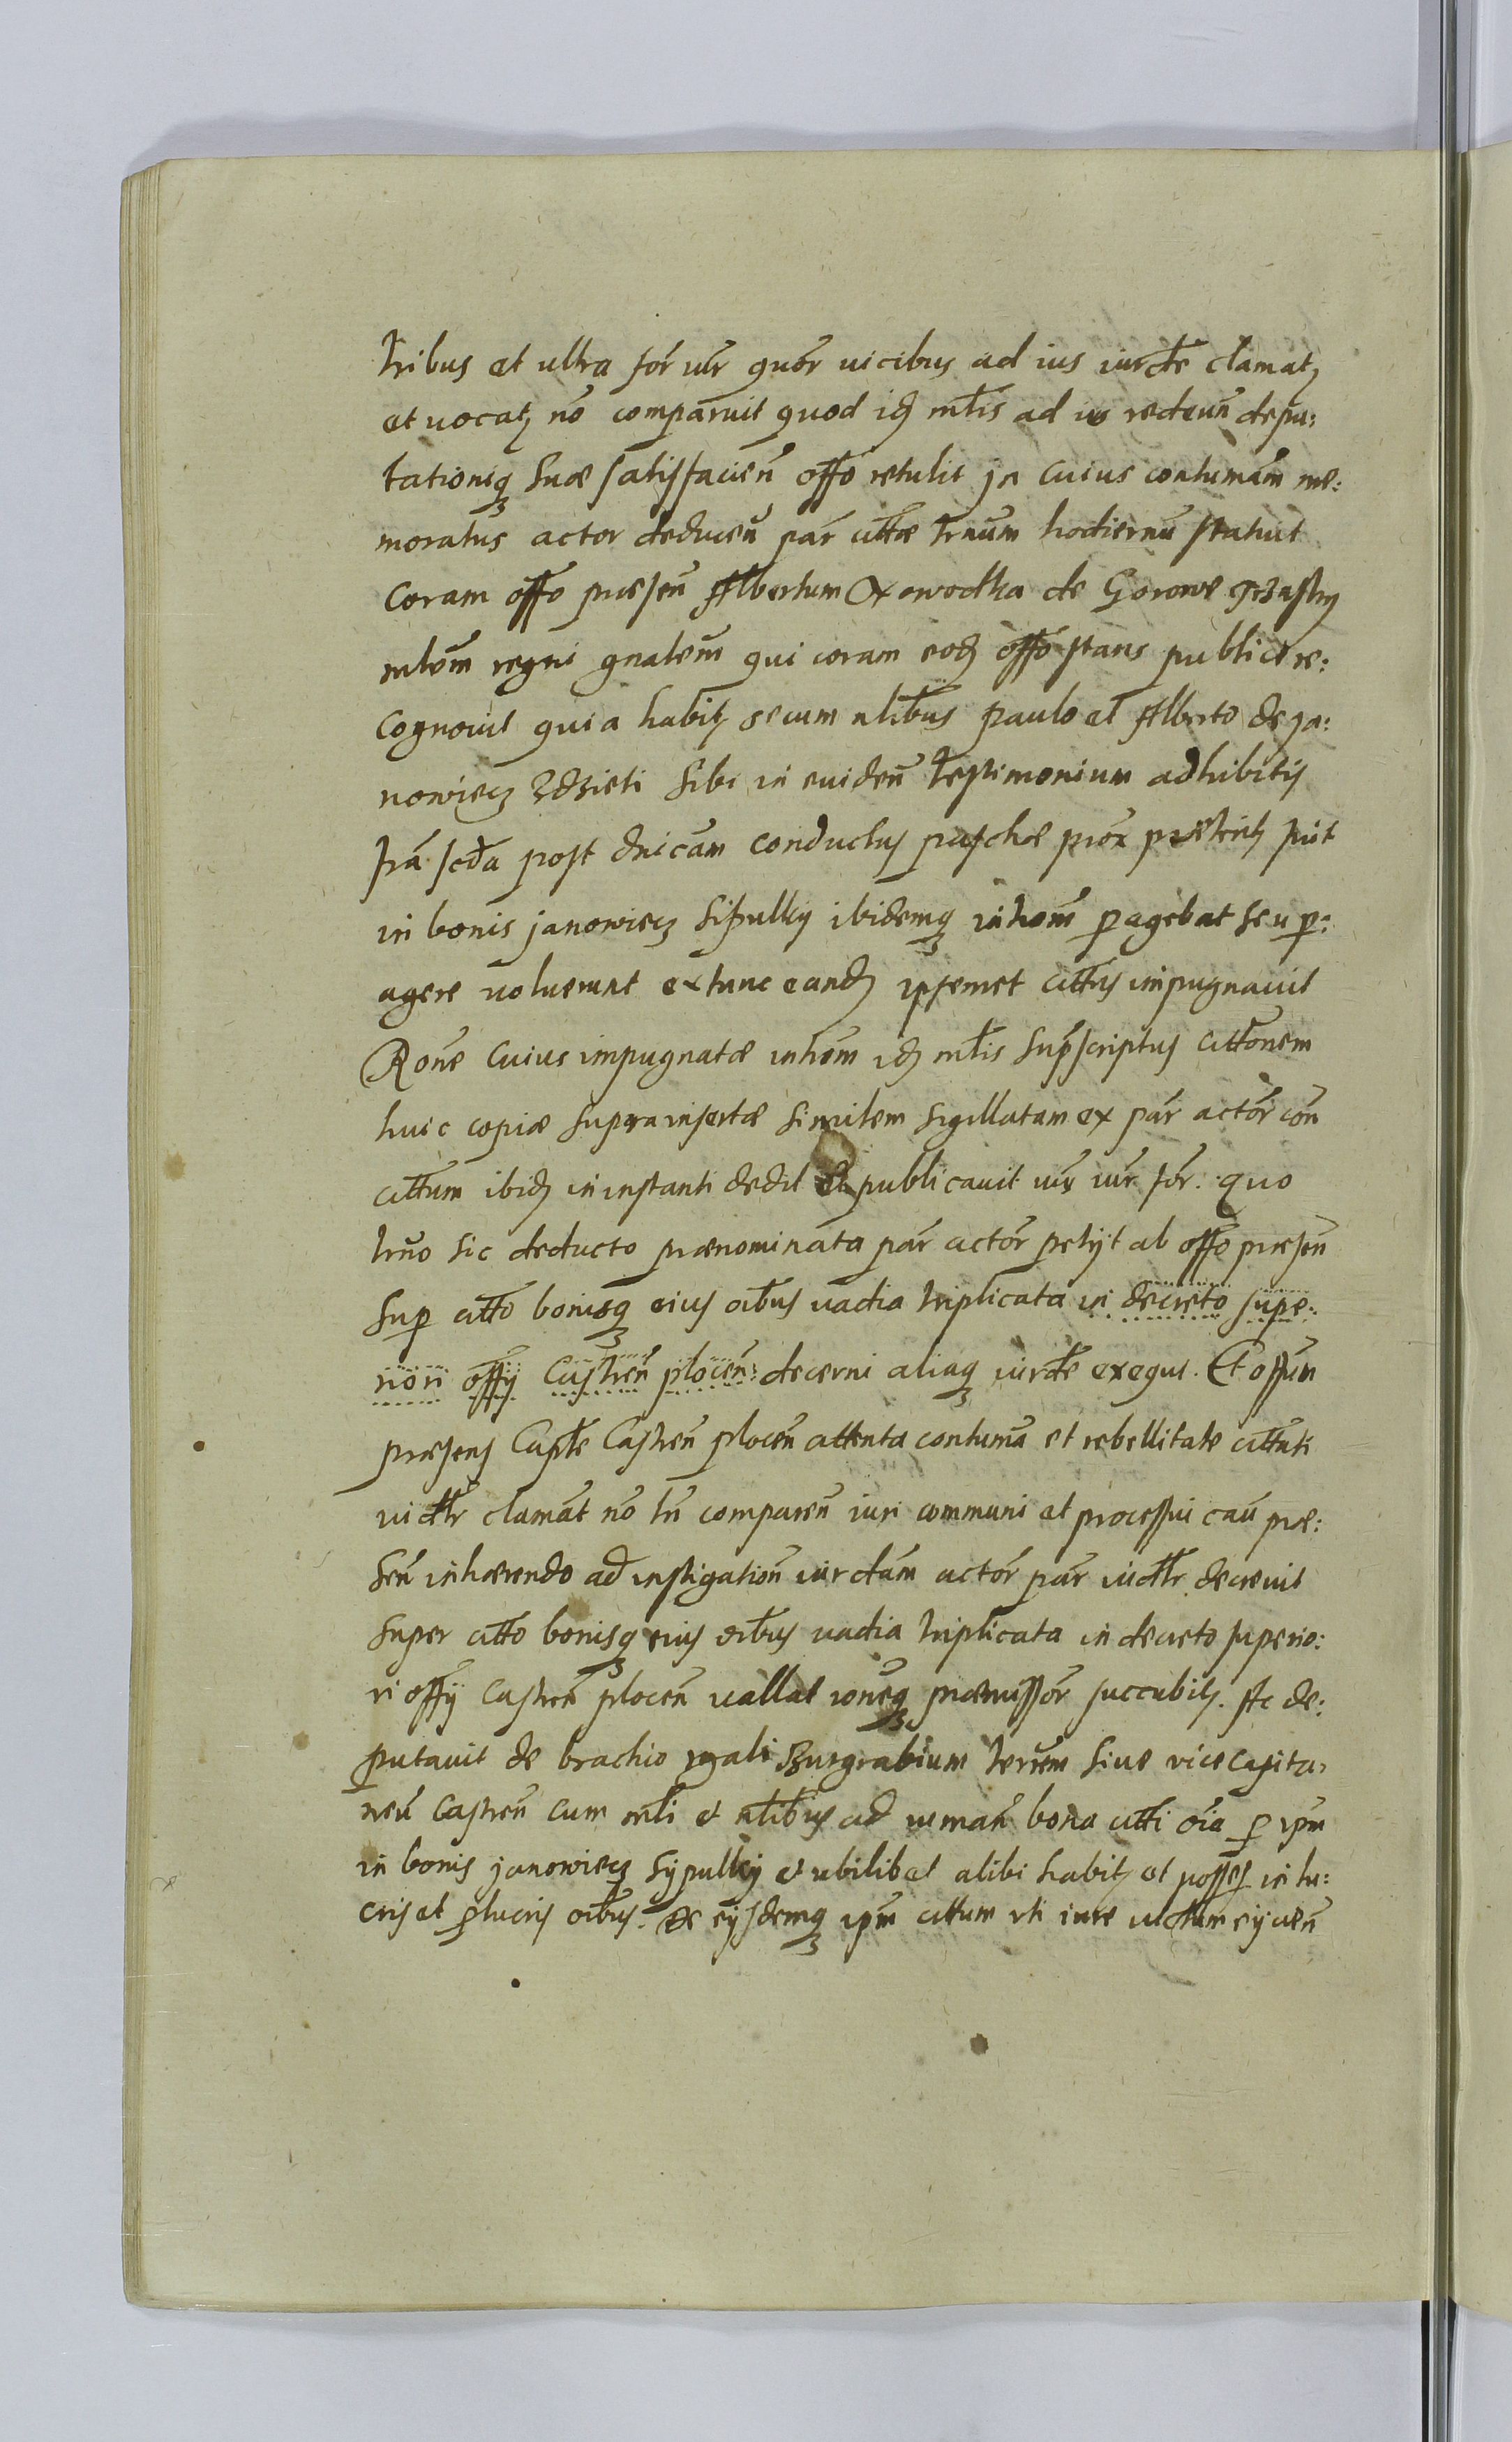 tribus et ultra for iur quor vicibus ad ius iurdte clamatꝫ
et vocatꝫ nō comparuit quod idꝫ mlis ad ius redeun depu:
tationiqꝫ suæ satisfacien offō retulit jn cuius contumām me:
moratus actor deducen par cittæ trnum hodiernū statuit
coram offō præsen Albertum de Gorowe
mlem regni gnalem qui coram eodꝫ offō stans publice re:
cognovit quia habitꝫ secum nlibus Paulo et Alberto de ja:
nowiecz Zdzieti sibi in euiden testimonium adhibitis
fra scda post dnicam conductus paschæ prox præteritꝫ fuit
in bonis janowiecz Sipulky ibidemqꝫ inhom pagebat seu p:
agere voluerunt extunc eandꝫ ipsemet cittus impugnavit
Rone cuius impugnatæ inhom idꝫ mlis supscriptus cittonem
huic copiæ suprainsertæ similem sigillatam ex par actor con
cittum ibidꝫ in instanti dedit et publicavit iux iur for. quo
trno sic deducto prænominata par actor petijt ab offō præsen
sup citto bonisqꝫ eius oibus vadia triplicata in decreto supe:
riori offij Castren plocen: decerni aliaqꝫ iurdte exequi. Et offum
præsens Capte Castren plocen attenta contuma et rebellitate cittati
ut dttr clamat nō tn comparen iuri communi et processui cau præ:
sen inhærendo ad instigation iurdtam actor par iudtlr decrevit
super citto bonisqꝫ eius oibus vadia triplicata in decreto superio:
ri offij Castren plocen vallat ioneqꝫ præmissor succubitꝫ. Ac de:
putavit de brachio regali Burgrabium terrem sive vicecapita:
neū Castren cum mli et nlibus ad iuman bona citti oia p ipm
in bonis janowiecz Sypulky et ubilibet alibi habitꝫ et posses in lu:
cris et plucris oibus. De eijsdemqꝫ ipm cittum uti iure victum eijcien